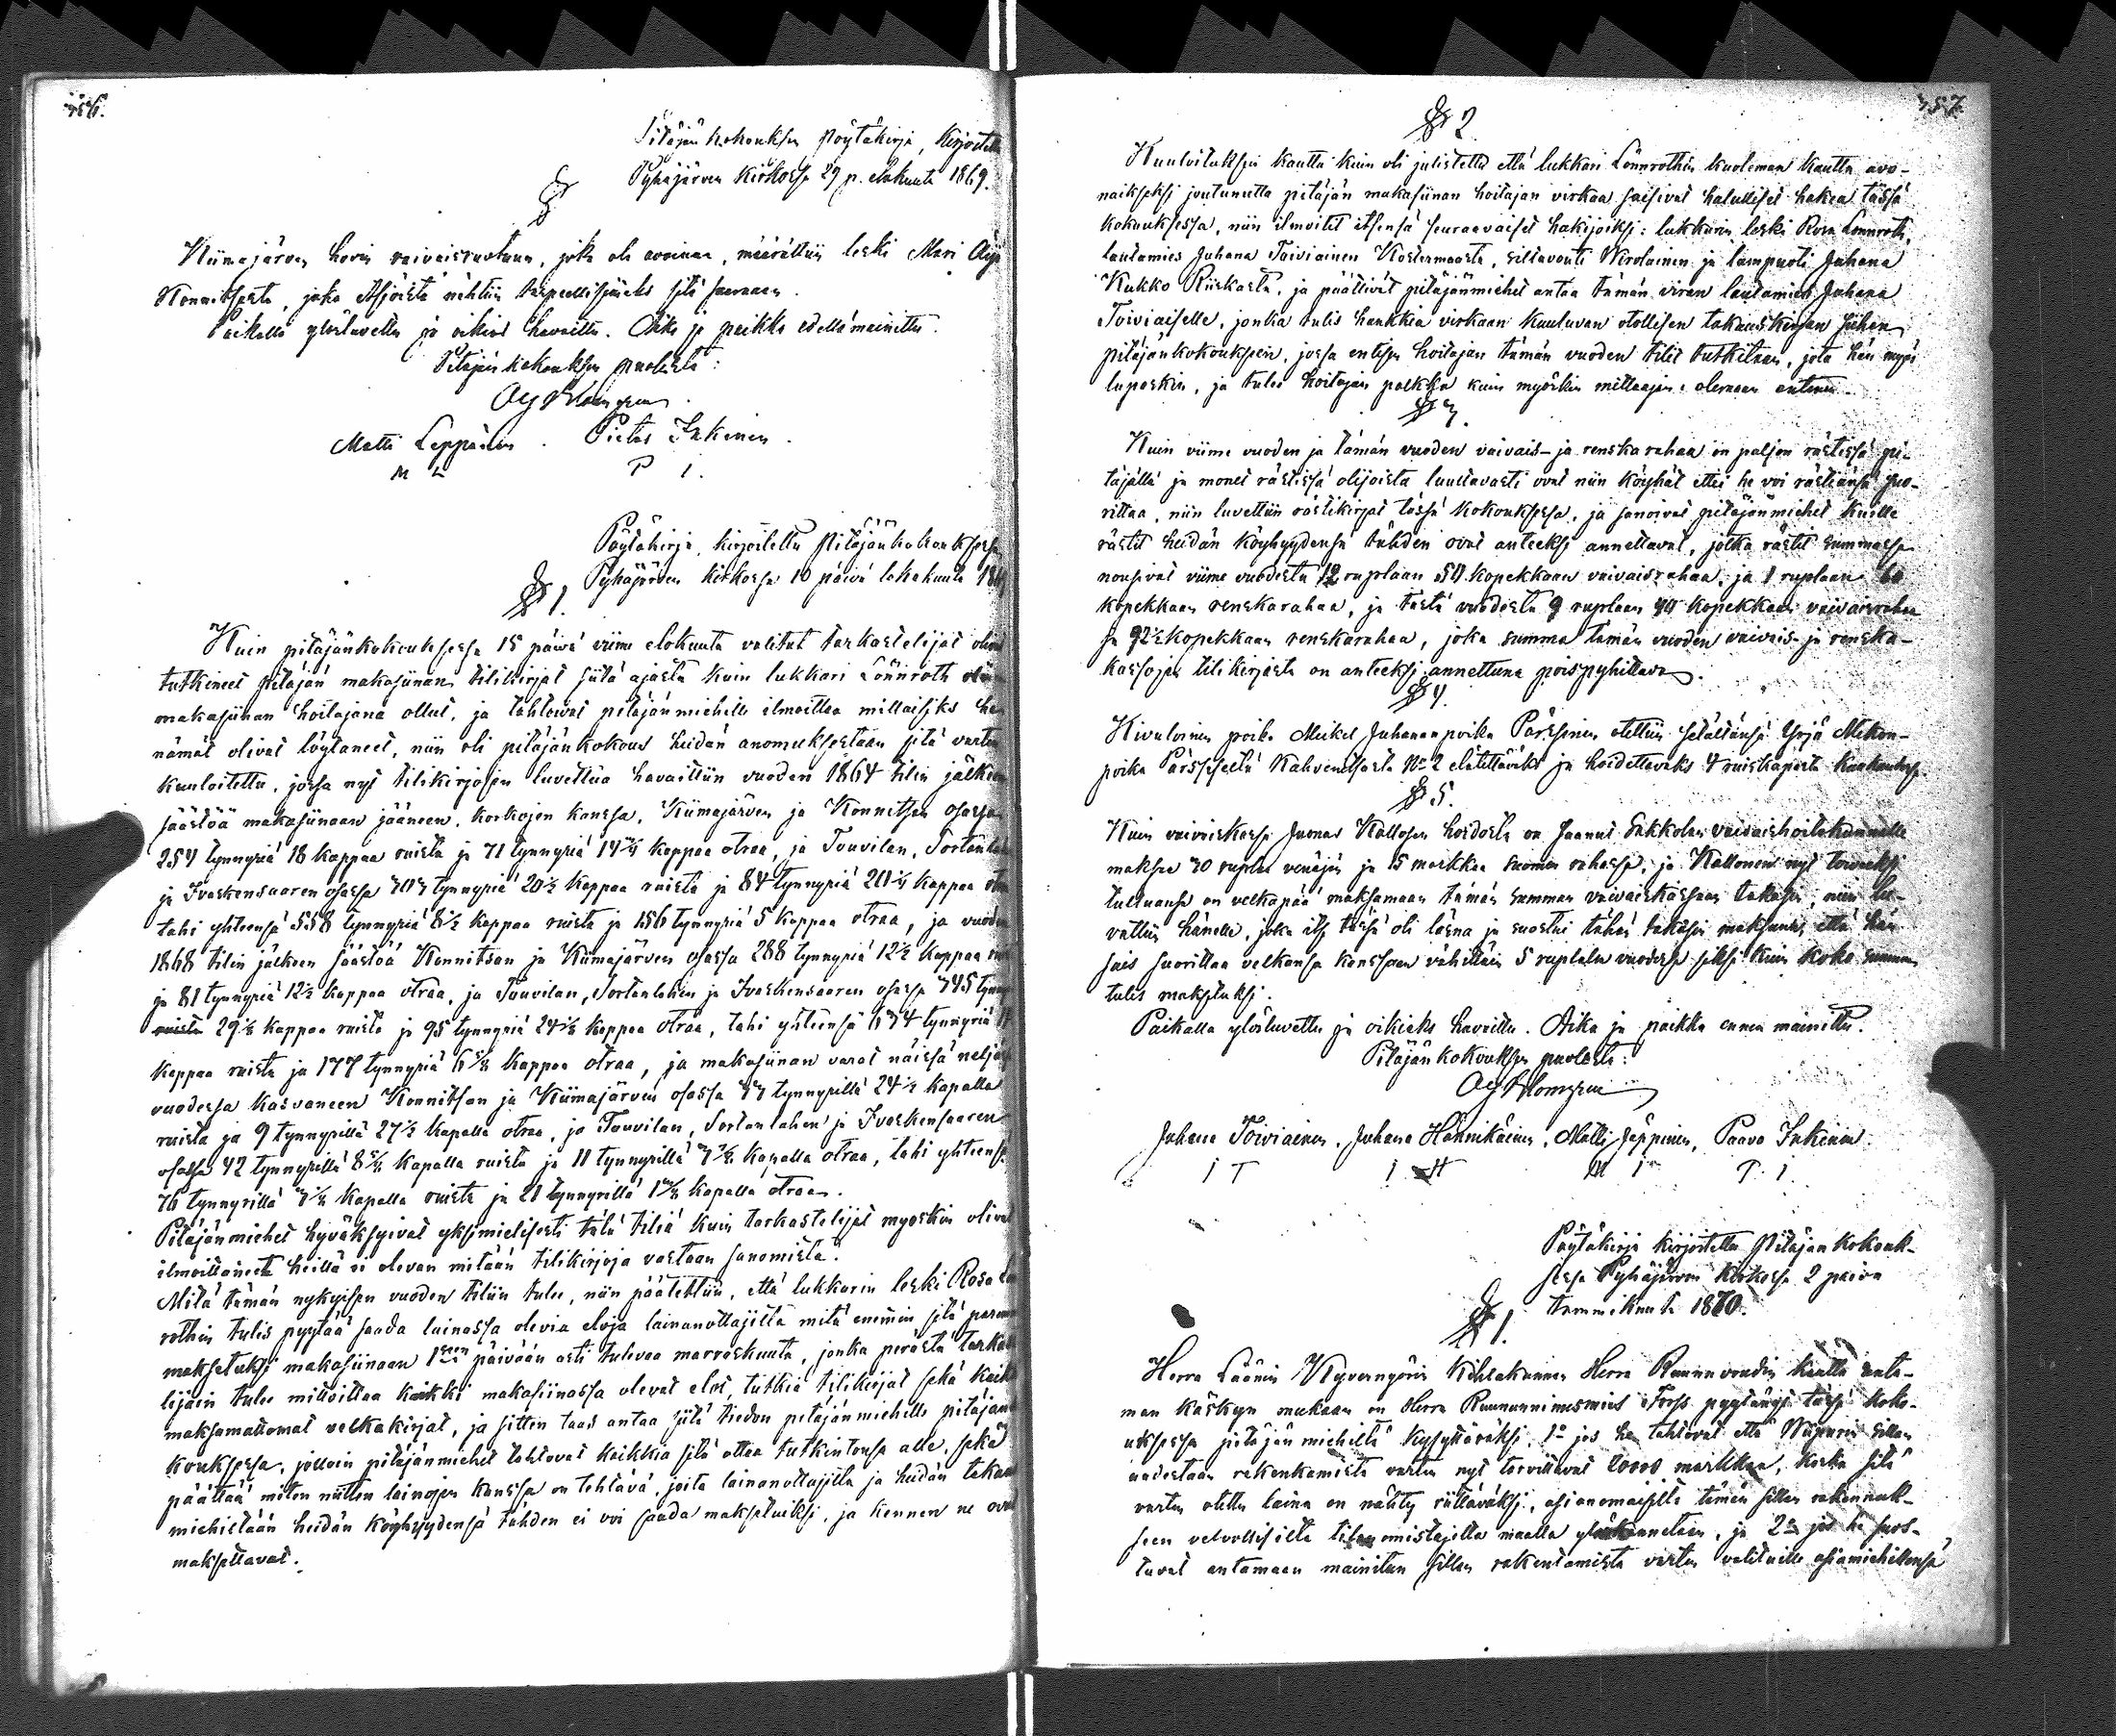 356.
Pitäjän kokouksen pöytäkirja, kirjoitettu
Pyhäjärven kirkossa 29 p. elokuuta 1869.
§
Kiimajärven hovin vaivaisruotuun, joka oli avoinna, määrättiin leski Mari Äijö
Konnitsasta, joka Asjoista nähtiin tarpeellisjaeks sitä saamaan.
Paikalla ylösluvettu ja oikiaks havaittu. Aika ja paikka edellä mainittu.
Pitäjän kokouksen puolesta:
Aug Blomgren
Matti Leppänen. Pietar Inkinen.
M L P I.
Pöytäkirja, kirjoitettu Pitäjänkokouksessa
Pyhäjärven kirkossa 10 päivä lokakuuta 1869
§ 1.
Kuin pitäjänkokouksessa 15 päivä viime elokuuta valitut tarkastelijat olivat
tutkineet pitäjän makasiinan tilikirjat siitä ajasta kuin lukkari Lönnroth
makasiinan hoitajana ollut, ja tahtowat pitäjänmiehille ilmoittaa millaisiks
nämät olivat löytäneet, niin oli pitäjänkokous heidän anomuksestaan sitä varten
kuuloitettu, jossa nyt tilikirjojen luvettua havaittiin vuoden 1864 tilin jälkeen
säästöä makasiinaan jääneen, korkojen kanssa, Kiimajärven ja Konnitsan osassa
254 tynnyriä 18 kappaa ruista ja 71 tynnyriä 14 3/4 kappaa otraa, ja Touvilan, Sortanlahen
ja Ivaskensaaren osassa 303 tynnyriä 20 1/2 kappaa ruista ja 84 tynnyriä 20 1/4 kappaa otraa
tahi yhteensä 558 tynnyriä 8 1/2 kappaa ruista ja 156 tynnyriä 5 kappaa otraa, ja vuoden
1868 tilin jälkeen säästöä Konnitsan ja Kiimajärven osassa 288 tynnyriä 12 1/2 kappaa
ja 81 tynnyriä 12 1/2 kappaa otraa, ja Touvilan, Sortanlahen ja Ivaskensaaren osassa 345 tynnyriä
ruista 29 1/8 kappaa ruista ja 95 tynnyriä 24 1/8 kappaa otraa, tahi yhteensä 634 tynnyriä
kappaa ruista ja 177 tynnyriä 6 5/8 kappaa otraa, ja makasiinan varat näissä neljässä
vuodessa kasvaneen Konnitsan ja Kiimajärven osassa 33 tynnyrillä 24 1/2 kapalla
ruista ja 9 tynnyrillä 27 1/2 kapalla otraa, ja Touvilan, Sortanlahen ja Ivaskensaaren
osassa 42 tynnyrillä 8 5/8 kapalla ruista ja 11 tynnyrillä 3 7/8 kapalla otraa, tahi yhteensä
76 tynnyrillä 3 1/8 kapalla ruista ja 21 tynnyrillä 1 3/8 kapalla otraa.
Pitäjänmiehet hyväksyivät yksimielisesti tätä tiliä kuin tarkastelijat myöskin olivat
ilmoittaneet heillä ei olevan mitään tilikirjoja vastaan sanomista.
Mitä tämän nykyisen vuoden tiliin tulee, niin päätettiin, että lukkarin leski Rosa Lönn
rothin tulis pyytää saada lainassa olevia eloja lainanottajilta mitä enemmin sitä paremmin
maksetuksi makasiinaan 1sen päivään asti tulevaa marraskuuta, jonka perästä tarkaste
lijain tulee mitoittaa kaikki makasiinassa olevat elot, tutkia tilikirjat sekä kaikki
maksamattomat velkakirjat, ja sitten taas antaa siitä tiedon pitäjänmiehille pitäjän
kouksessa, jolloin pitäjänmiehet tahtovat kaikkia sitä ottaa tutkintonsa alle, sekä
päättää miten niitten lainojen kanssa on tehtävä, joita lainanottajilta ja heidän takaus
miehiltään heidän köyhyydensä tähden ei voi saada maksetuiksi, ja kennen ne ovat
maksettavat.
357.
§ 2
Kuuloituksen kautta kuin oli julistettu että lukkari Lönnrothin kuoleman kautta avo-
naiseksi joutunutta pitäjän makasiinan hoitajan virkaa saisivat halulliset hakea tässä
kokouksessa, niin ilmoitit itsensä seuraavaiset hakijoiksi: lukkarin leski Rosa Lönnroth,
lautamies Juhana Toiviainen Kostermaasta, siltavouti Wirolainen ja lampuoti Juhana
Kukko Riiskasta, ja päättivät pitäjänmiehet antaa tämän viran lautamies Juhana
Toiviaiselle, jonka tulis hankkia virkaan kuuluvan otollisen takauskirjan siihen
pitäjänkokoukseen, jossa entisen hoitajan tämän vuoden tilit tutkitaan, jota hän myös
lupaskin, ja tulee hoitajan palkka kuin myöskin mittaajain olemaan entinen.
§ 3.
Kuin viime vuoden ja tämän vuoden vaivais- ja renskarahaa on paljon rästissä pi-
täjällä ja monet rästissä olijoista luultavasti ovat niin köyhät ettei he voi rästiänsä suo-
rittaa, niin luvettiin rästikirjat tässä kokouksessa, ja sanoivat pitäjänmiehet kuille
rästit heidän köyhyydensä tähden ovat anteeksi annettavat, jotka rästit summassa
nousivat viime vuodesta 12 ruplaan 54 kopekkaan vaivaisrahaa, ja 1 ruplaan 60
kopekkaan renskarahaa, ja tästä vuodesta 9 ruplaan 44 kopekkaan vaivaisrahaa
ja 92 1/2 kopekkaan renskarahaa, joka summa tämän vuoden vaivais- ja renska-
kassojen tilikirjasta on anteeksi annettuna poispyhittävä.
§ 4.
Kivuloinen poika Mickel Juhananpoika Pärssinen otettiin setältänsä Yrjä Mikon-
poika Pärssiseltä Kahvenitsasta No 2 elätettäväks ja hoidettavaks 4 ruiskapasta kuukaudessa.
§ 5.
Kuin vaivaiskassa Juonas Kallosen hoidosta on saanut Sakkolan vaivaishoitokunnalle
maksaa 30 ruplaa venäjän ja 15 markkaa suomen rahassa, ja Kallonen nyt terveeksi
tultuansa on velkapää maksamaan tämän summan vaivaiskassaan takasin, niin lu-
vattiin hänelle, joka itse tässä oli läsnä ja suostui tähän takasin maksuun, että hän
sais suorittaa velkansa kassaan vähittäin 5 ruplalla vuodessa siksi kuin koko summa
tulis maksetuksi.
Paikalla ylösluvettu ja oikiaks havaittu. Aika ja paikka ennen mainittu.
Pitäjän kokouksen puolesta:
Aug Blomgren
Juhana Toiviainen. Juhana Hännikäinen. Matti Jäppinen, Paavo Inkinen.
I T I H M I P. I.
Pöytäkirja kirjoitettu Pitäjänkokouk-
sessa Pyhäjärven kirkossa 2 päivä
tammikuuta 1870.
§ 1.
Herra Läänin Kyvernyörin Kihlakunnan Herra Ruununvoudin kautta anta-
man käskyn mukaan on Herra Ruununnimismies Forss pyytänyt tässä koko-
uksessa pitäjän miehiltä kysyttäväksi, 1o jos he tahtovat että Wiipurin sillan
uudestaan rakenkamista varten nyt tarvittavat 20000 markkaa, koska sitä
varten otettu laina on nähty riittäväksi, asianomaisilta tämän sillan rakennuk-
seen velvollisilta tilanomistajilta maalla ylöskannetaan, ja 2o jos he suos-
tuvat antamaan mainitun sillan rakentamista varten valituille asiamiehillensä